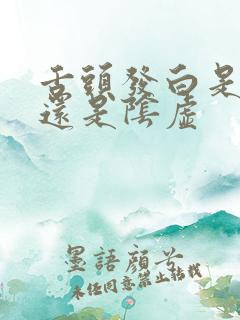 舌頭發白是
還是陰虛
墨語顏兮
未经同意禁止转载